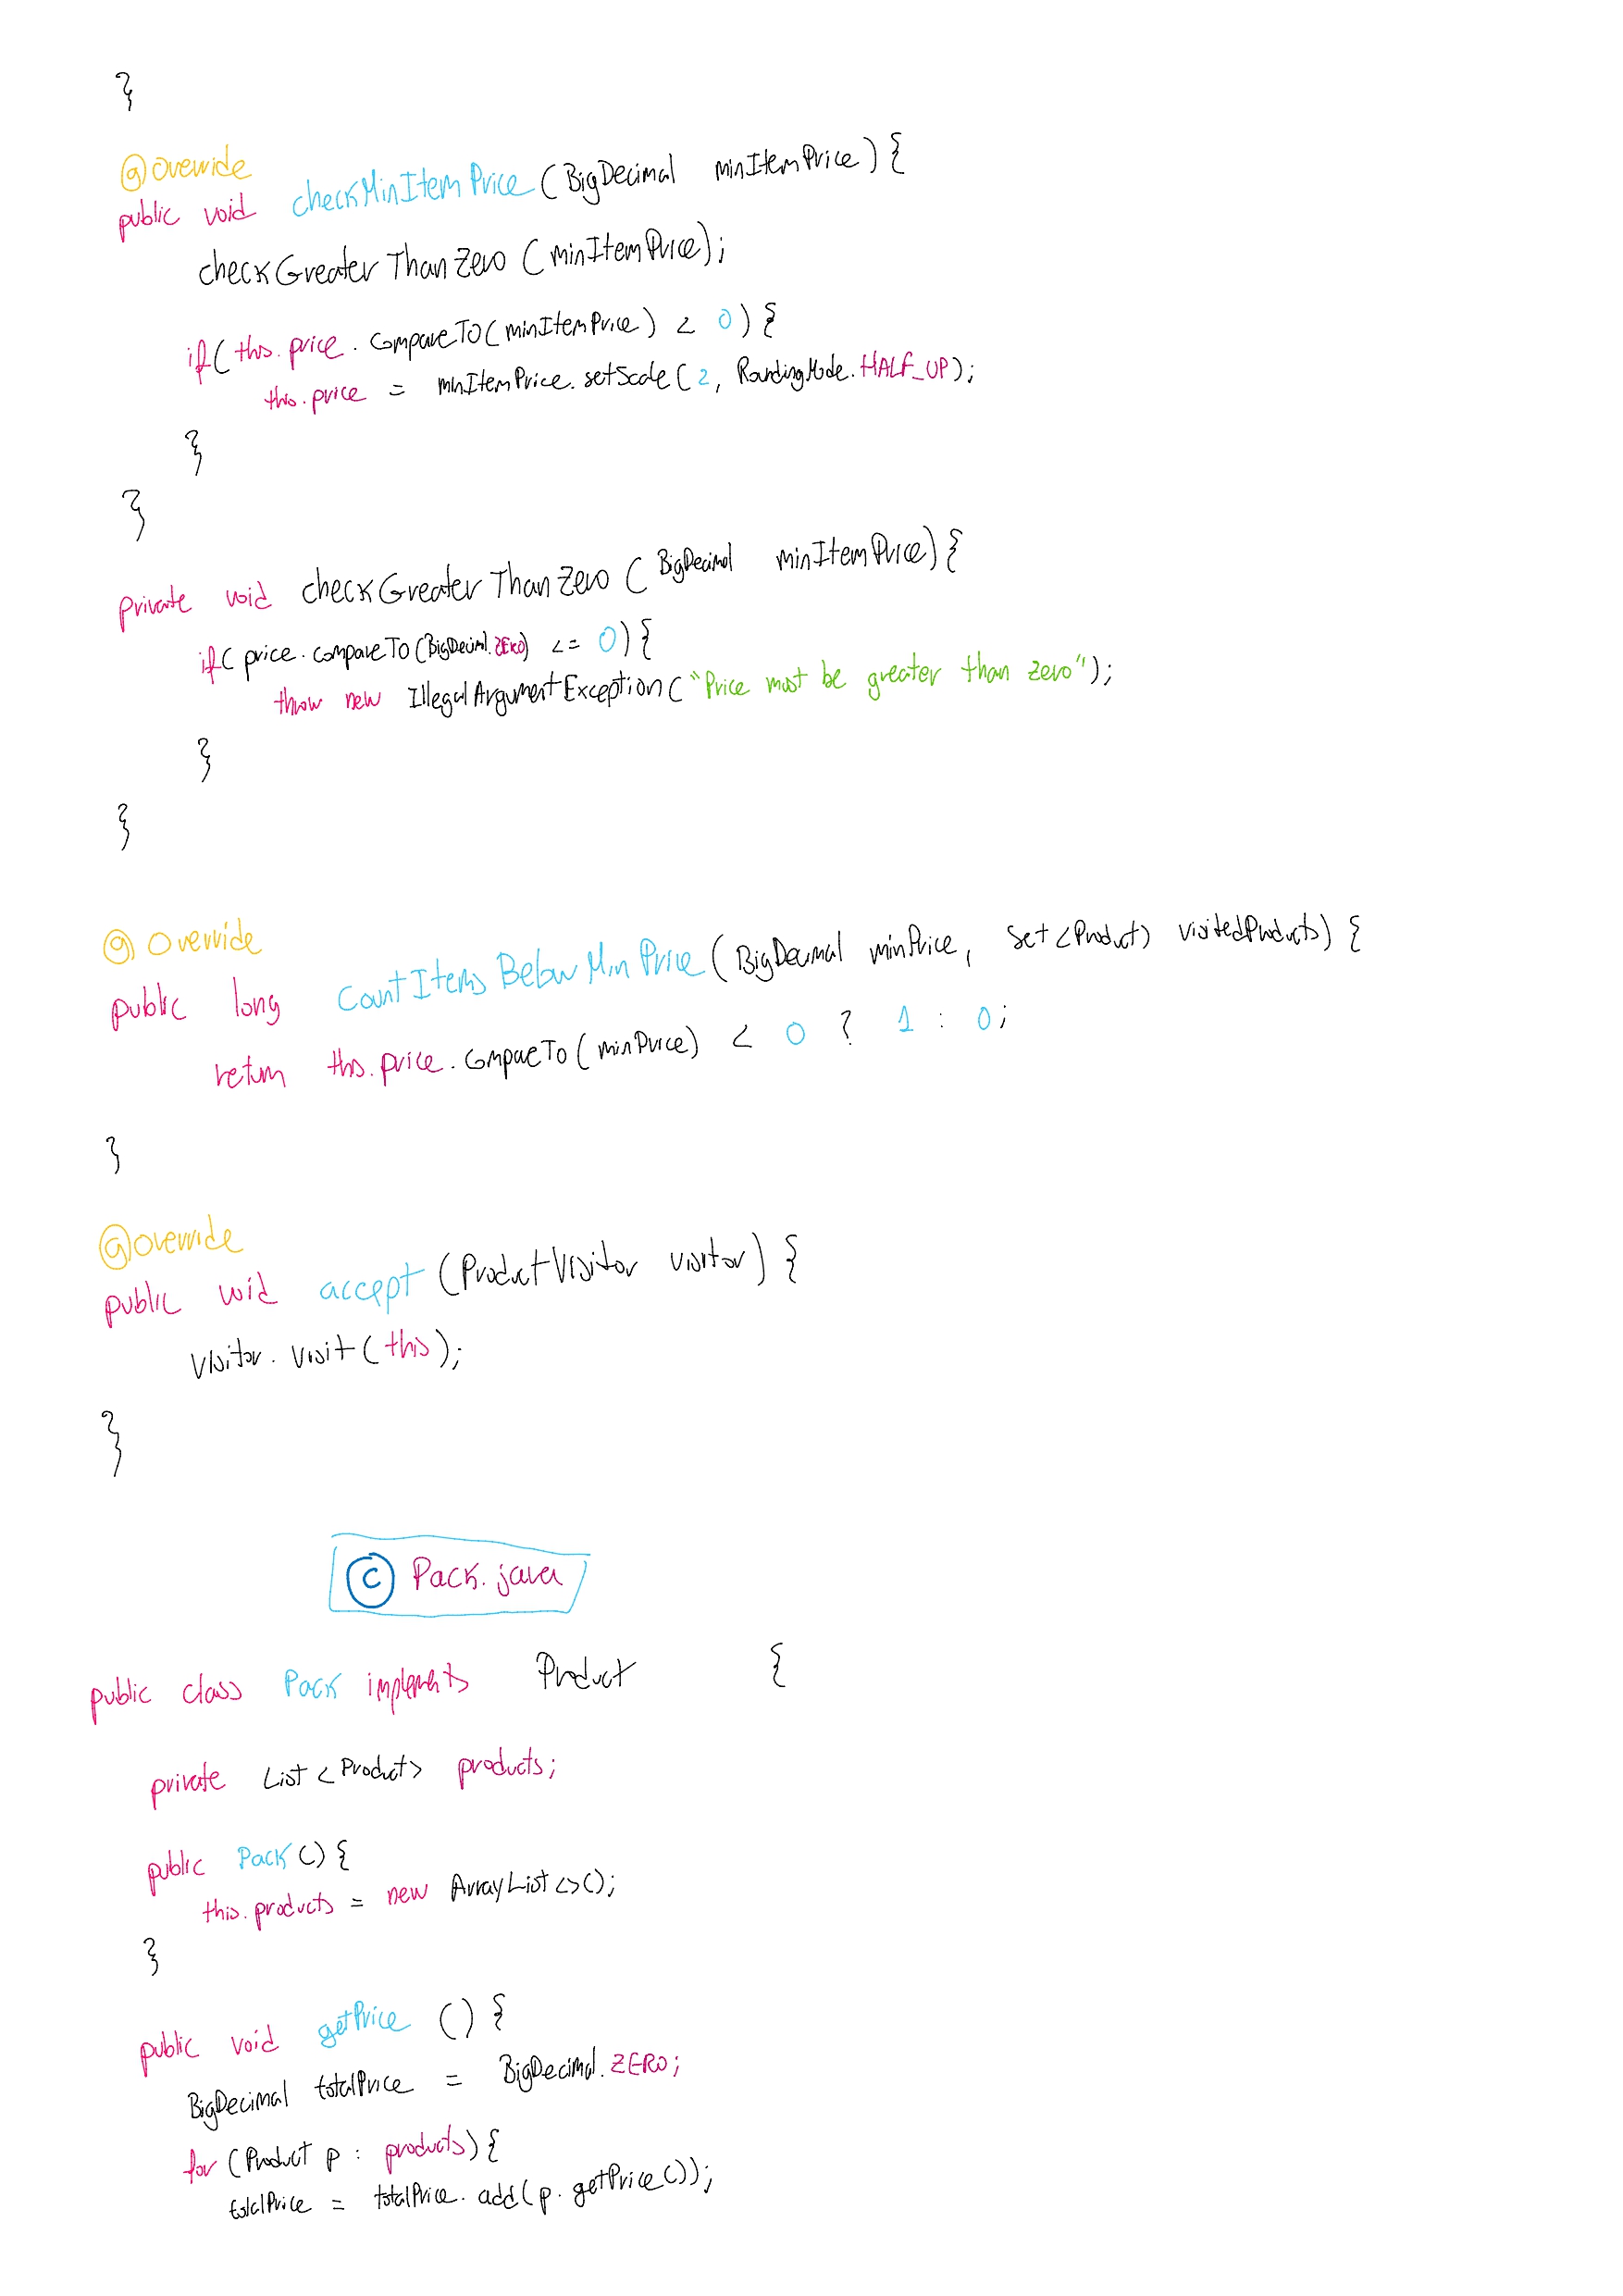 }
@Override
public void checkMinItemPrice (BigDecimal minItemPrice) {
checkGreaterThanZero (minItemPrice);
if( this.price.compareTo(minItemPrice) < 0) {
this.price = minItemPrice.setScale(2, RoundingMode.HALF_UP);
}
}
private void checkGreaterThanZero (BigDecimal minItemPrice) {
if( price.compareTo(BigDecimal.ZERO) <= 0) {
throw new IllegalArgumentException("Price must be greater than zero");
}
}
@Override
public long CountItemsBelowMinPrice (BigDecimal minPrice, Set<Product> visitedProducts) {
return this.price.compareTo(minPrice) < 0 ? 1 : 0;
}
@override
public void accept (ProductVisitor visitor) {
visitor.visit(this);
}
C Pack.java
public class Pack implements Product {
private List<Product> products;
public Pack() {
this.products = new ArrayList<>();
}
public void getPrice () {
BigDecimal totalPrice = BigDecimal.ZERO;
for (Product p : products) {
totalPrice = totalPrice.add(p.getPrice());